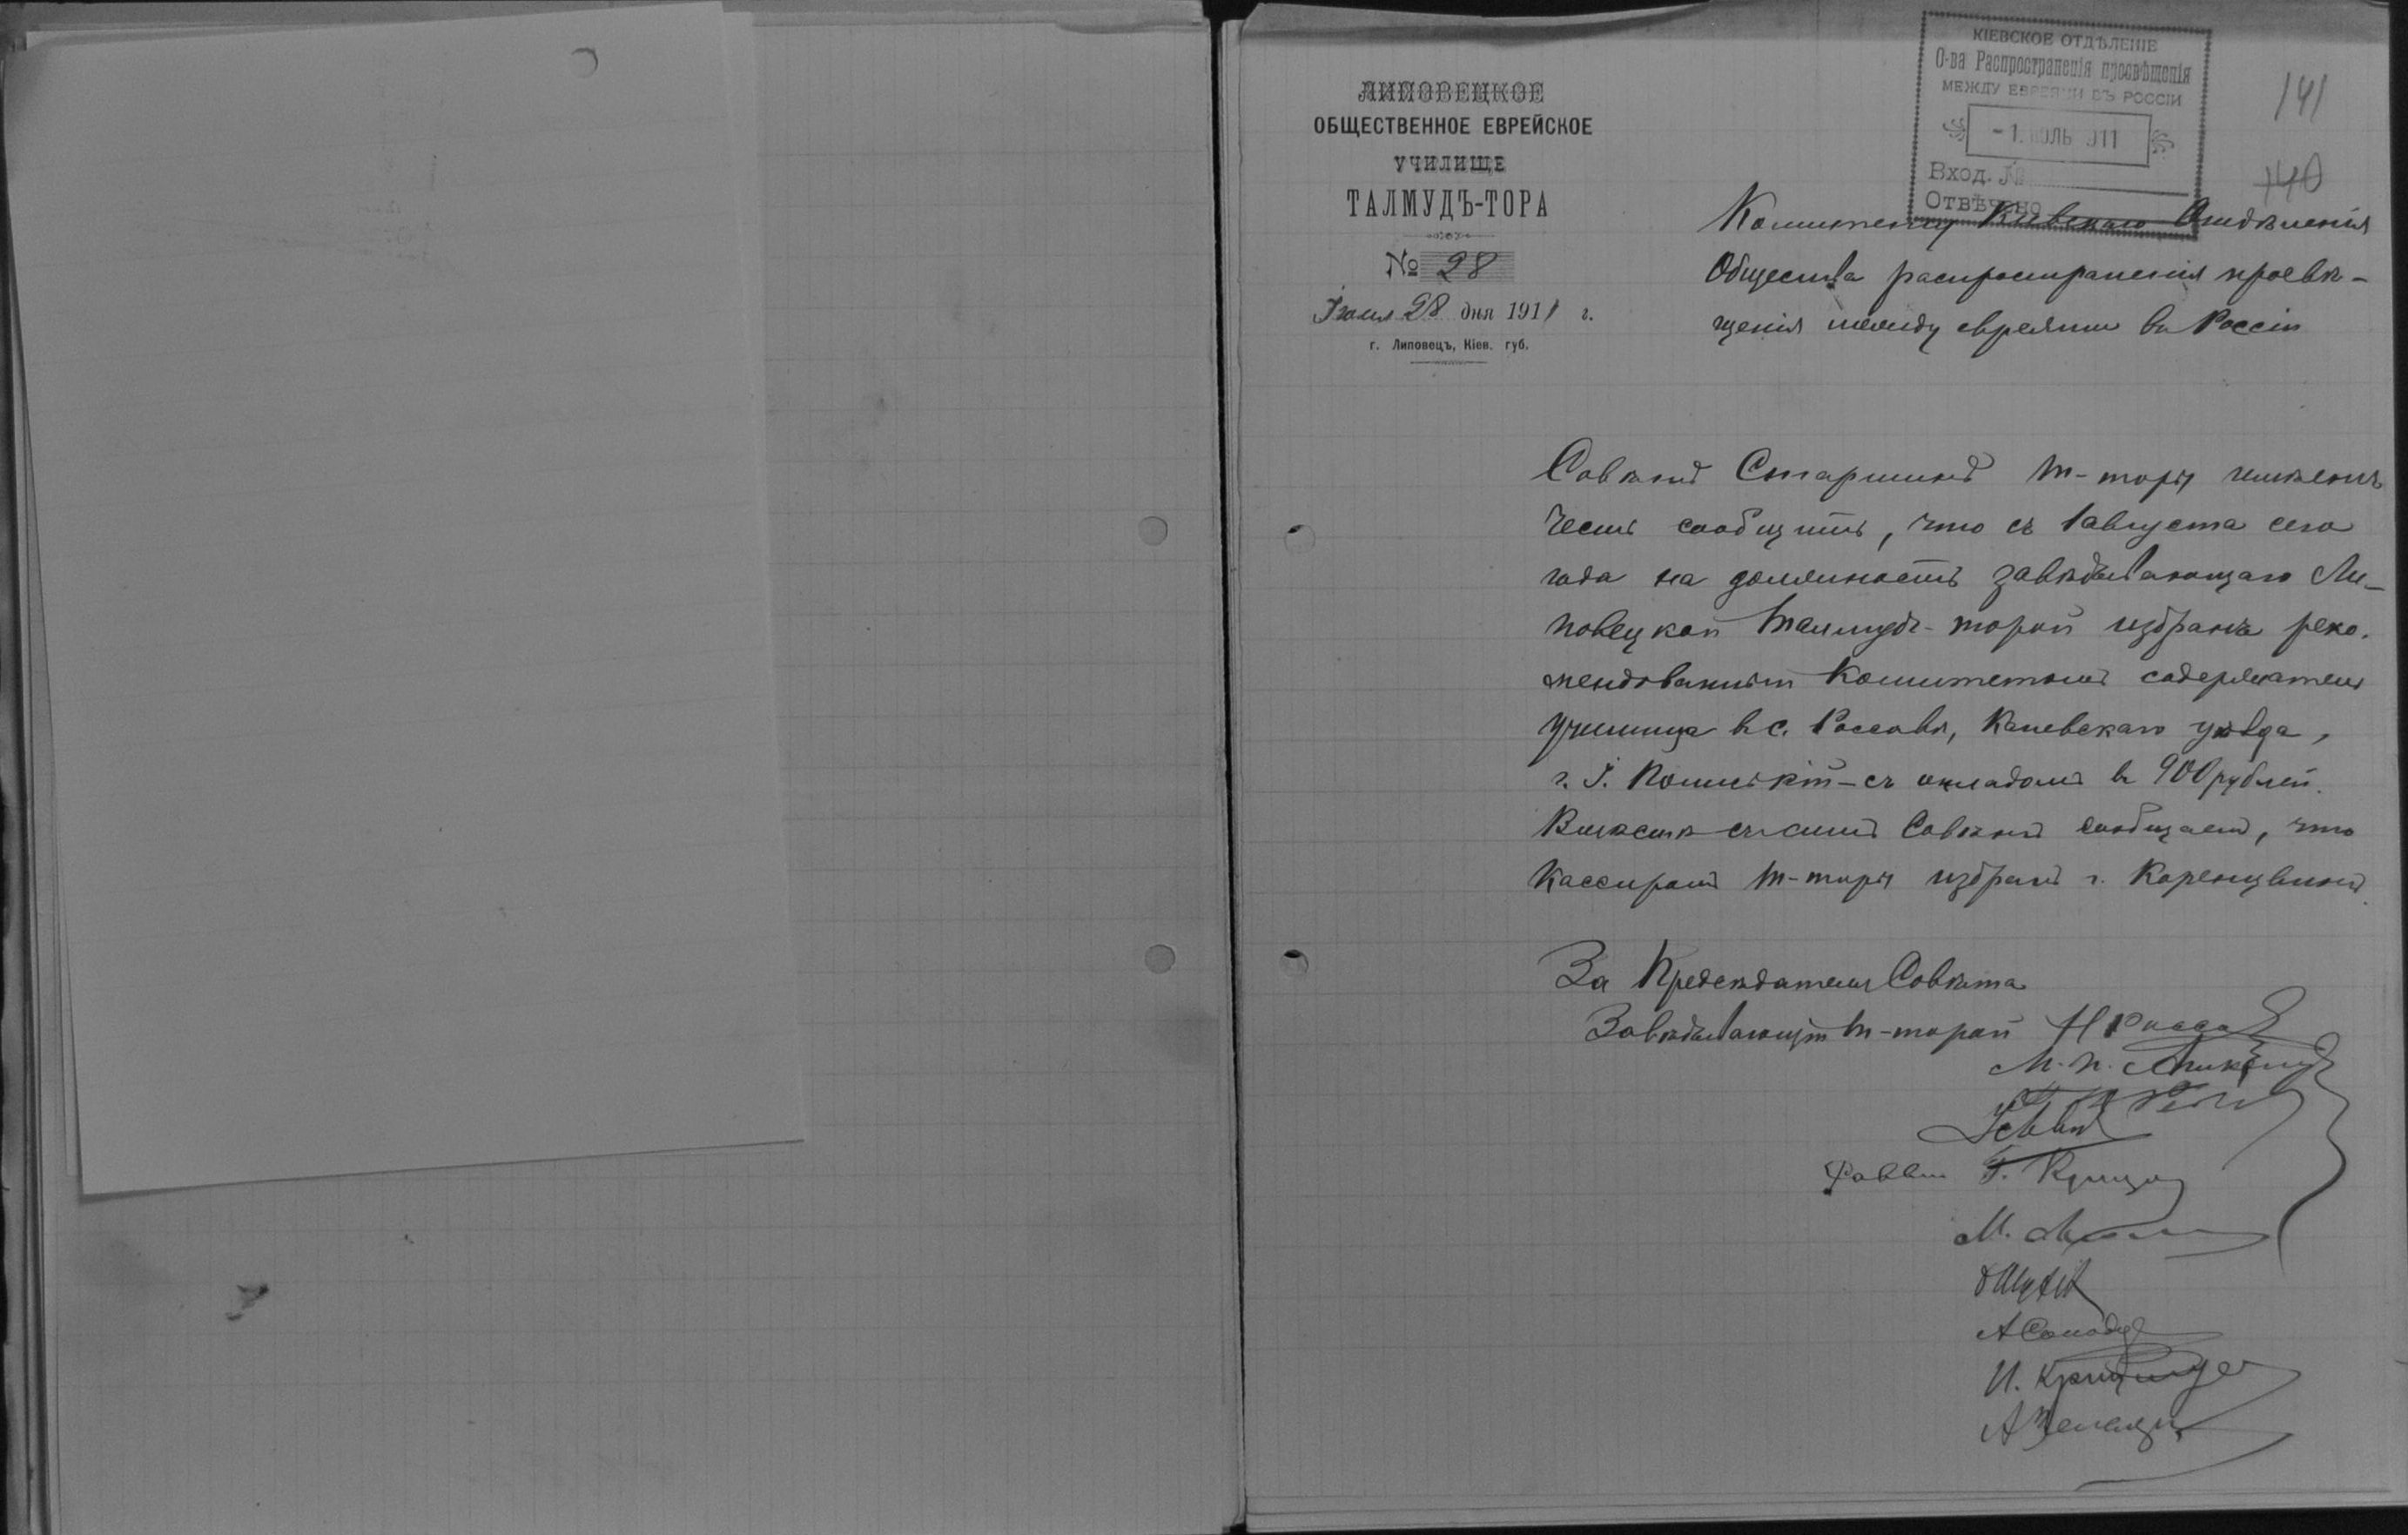 КІЕВСКОЕ ОТДѢЛЕНІЕ
О-ва Распространенія просвѣщенія
МЕЖДУ ЕВРЕЯМИ ВЪ РОССІИ
-1. ІЮЛЬ 911
Вход. №
Отвѣчено
141
140
ЛИПОВЕЦКОЕ
ОБЩЕСТВЕННОЕ ЕВРЕЙСКОЕ
УЧИЛИЩЕ
ТАЛМУДЪ-ТОРА
№ 28
28 дня 1911 г.
г. Липовецъ, Кіев. губ.
Комитету Кіевскаго Отдѣленія
Общества распространенія просвѣ-
щенія между евреями въ Россіи
Совѣтъ Старшинъ т-торы имѣетъ
честь сообщить, что съ 1 августа сего
года на должность завѣдывающаго Ли-
повецкой Талмудъ-торой избранъ реко-
мендованный Комитетомъ содержатель
училища въ с. Россавѣ, Каневскаго уѣзда,
г. І. съ окладомъ въ 900 рублей.
Вмѣстѣ съ симъ Совѣтъ сообщаетъ, что
Кассиромъ т-торы избранъ г. Коренцвитъ
За Предсѣдателя Совѣта
Завѣдывающій т-торой
М. П.
Г.
М.
И.